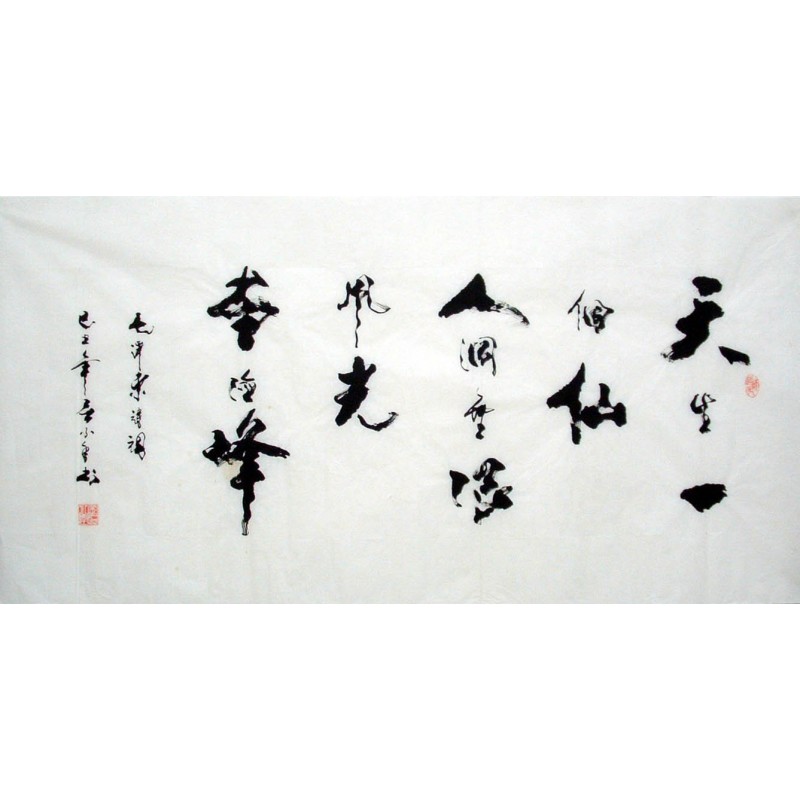 天生一
個仙
人洞無限
风光
在險峰
毛泽东诗词
己丑年 小 书